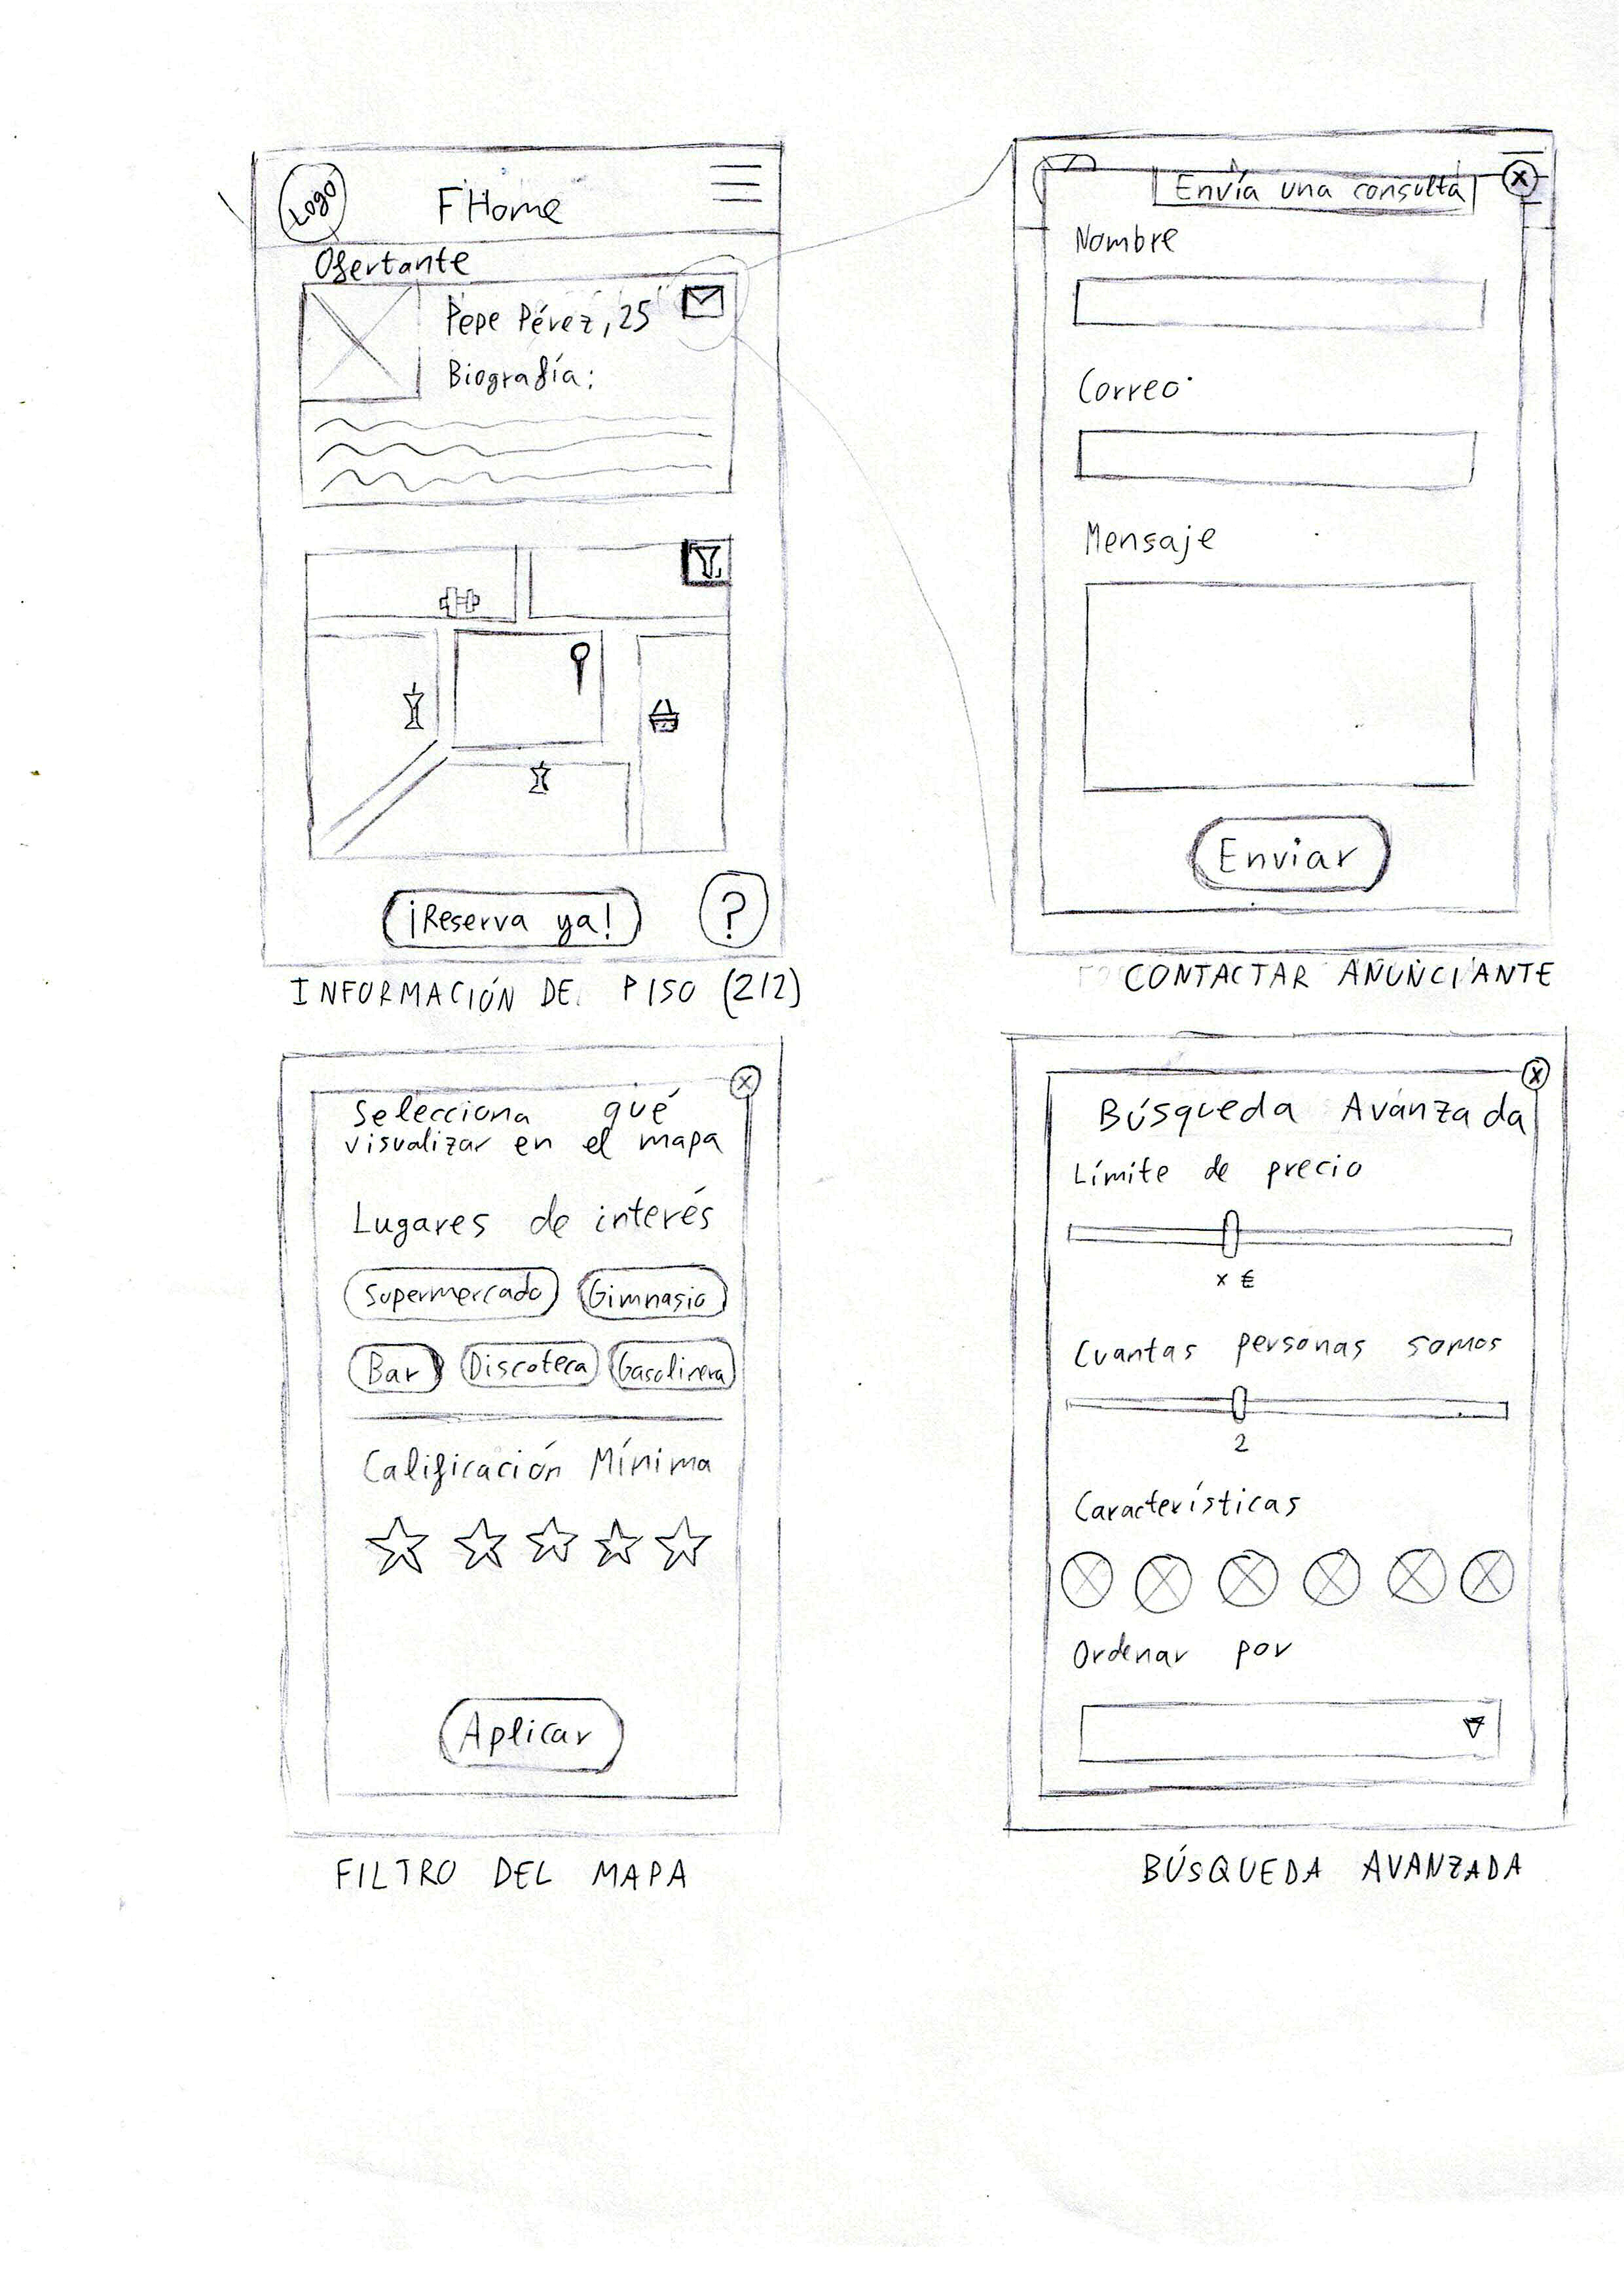 Logo
FHome
Ofertante
Pepe Pérez, 25
Biografía:
¡Reserva ya!
?
INFORMACIÓN DE PISO (2/2)
Envía una consulta
x
Nombre
Correo
Mensaje
Enviar
CONTACTAR ANUNCIANTE
x
Selecciona qué
visualizar en el mapa
Lugares de interés
Supermercado Gimnasio
Bar Discoteca Gasolinera
Calificación Mínima
Aplicar
FILTRO DEL MAPA
x
Búsqueda Avanzada
Límite de precio
x €
Cuantas personas somos
2
Características
Ordenar por
BÚSQUEDA AVANZADA